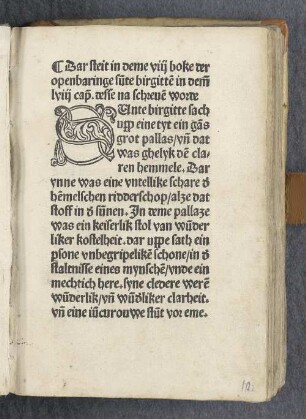 ¶ Dar steit in deme viij boke der
openbaringe sūte birgittē in dem̄
lviij cap̄. desse na schreuē worde
SEinte birgitte sach
vpp eine tyt ein gās
grot pallas/vn̄ dat
was ghelyk dē cla-
ren hemmele. Dar
ynne was eine vntellike schare d̕
hēmelschen ridderschop/alze dat
stoff in d̕ sūnen. In deme pallaze
was ein keiserlik stol van wūder
liker kostelheit. dar vppe sath ein
p̄sone vnbegripelikē schone/in d̕
staltnisse eines mynschē/vnde ein
mechtich here. syne cledere werē
wūderlik/vn̄ wūdliker clarheit.
vn̄ eine iūcurouwe stūt vor eme.